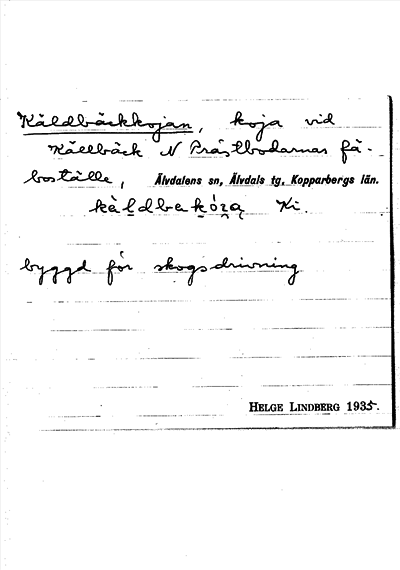 Käldbäckkojan, koja vid
Källbäck N Prästbodarnas fä-
boställe, Älvdalens sn, Älvdals tg, Kopparbergs län.
Ki.
byggd för skogsdrivning
HELGE LINDBERG 1935.